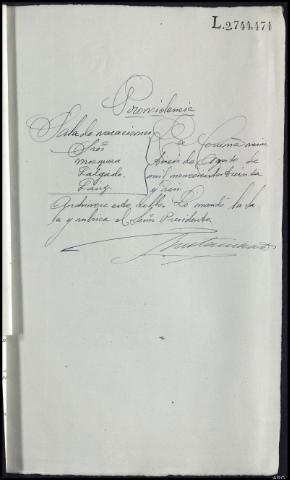 L.2744,471
Providencia
Sala de vacaciones
Sres
Mosquera
Salgado
Sanz
La Coruña vein
de Agosto de
mil novecientos treinta
y seis
Archívese este rollo. Lo mandó la Sa
la y rubrica el Señor Presidente